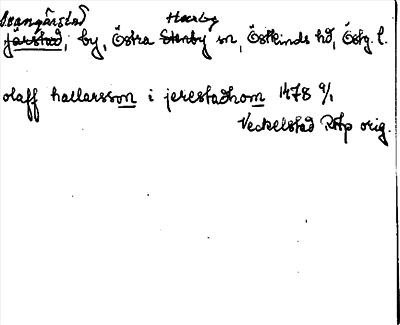 Svangärstad Harby
järstad, by, Östra Stenby sn, Östkinds hd, Östg. l.
olaff hallarsson i jerestadhom 1478 9/1
Veckelstad RAp orig.